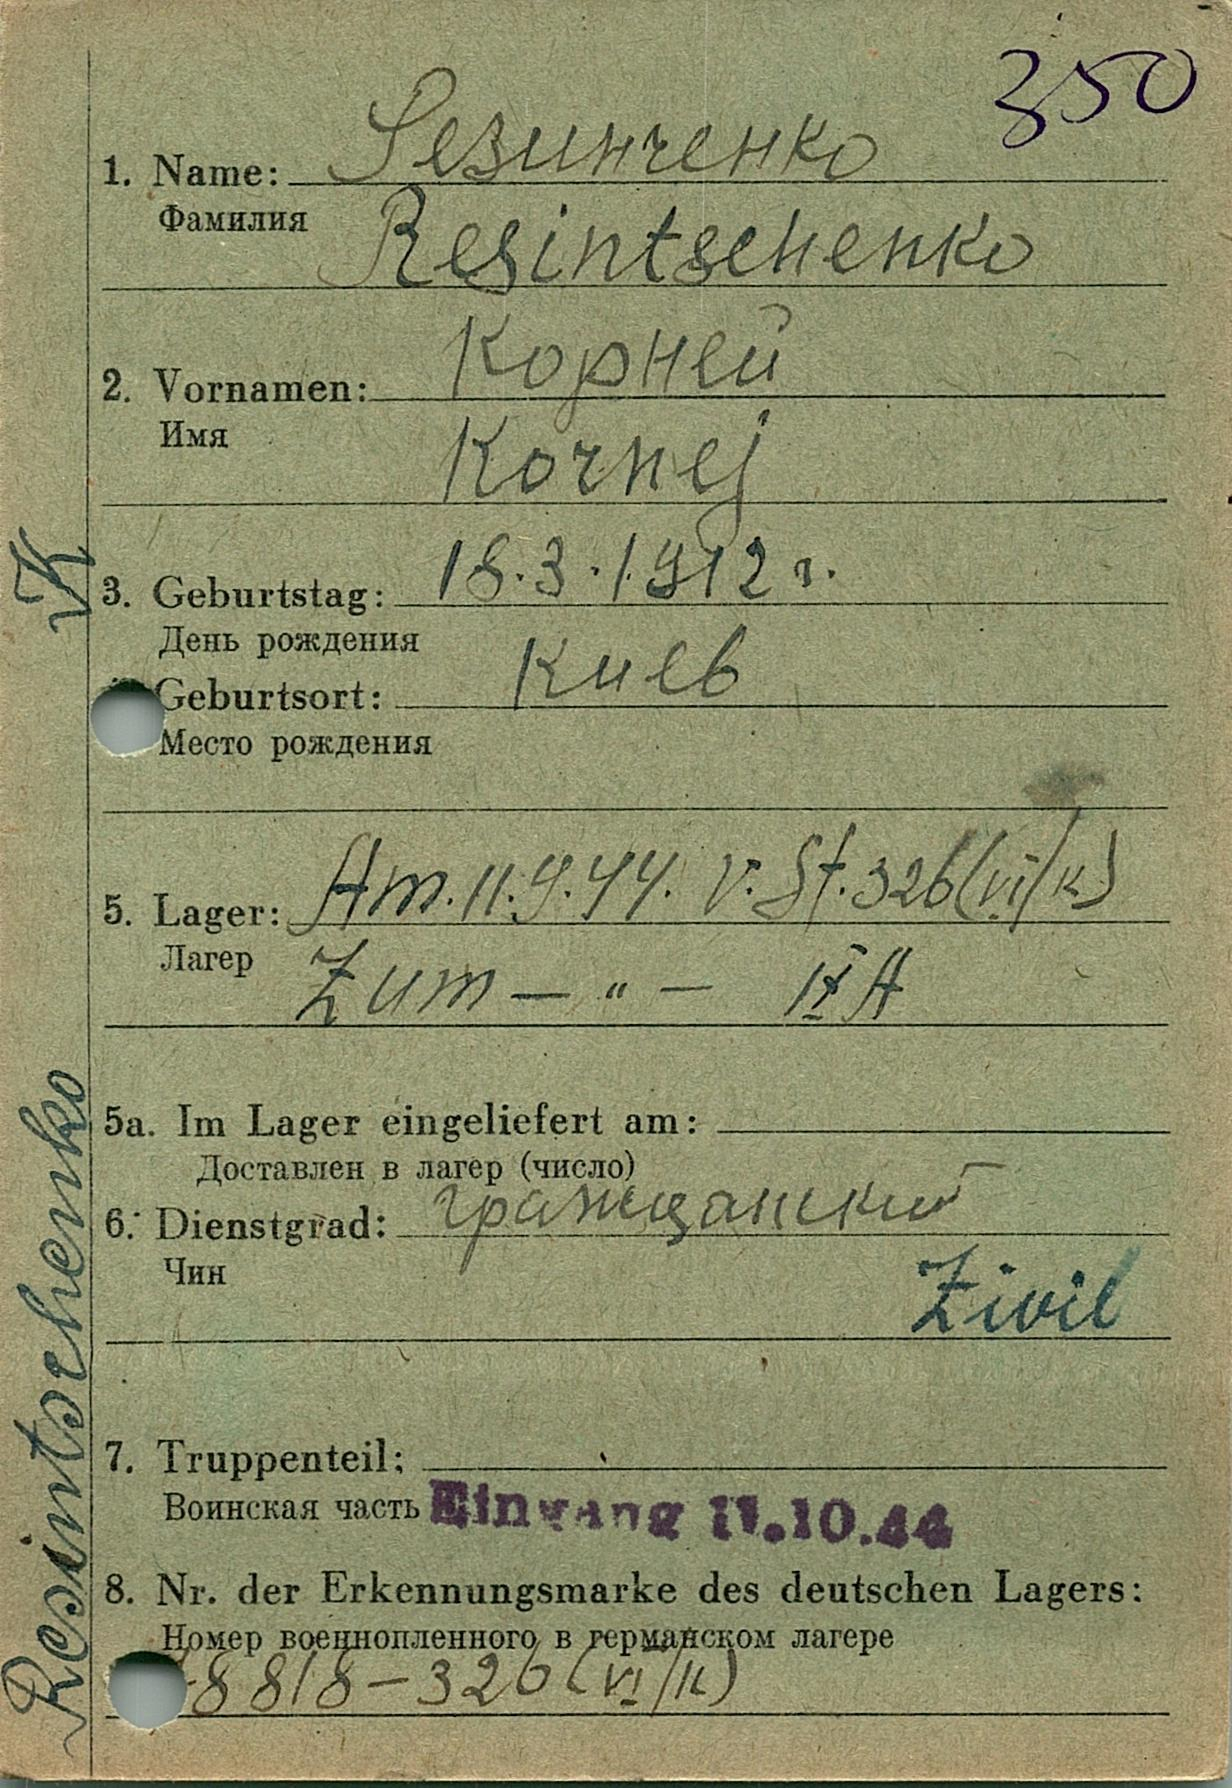 350
1. Name: Резинченко
Фамилия
Resintschenko
2. Vornamen: Корней
Имя
Kornej
3. Geburtstag: 18.3.1912 г.
День рождения
Geburtsort: Киев
Место рождения
5. Lager: Am. 11.9.44. v. St. 326 (VI/K)
Лагер
Zum — " — IX A
5a. Im Lager eingeliefert am:
Доставлен в лагер (число)
6. Dienstgrad: гражданский
Чин
Zivil
7. Truppenteil:
Воинская часть Eingang 11.10.44
8. Nr. der Erkennungsmarke des deutschen Lagers:
Номер военнопленного в германском лагере
8818 – 326 (VI/K)
Resintschenko